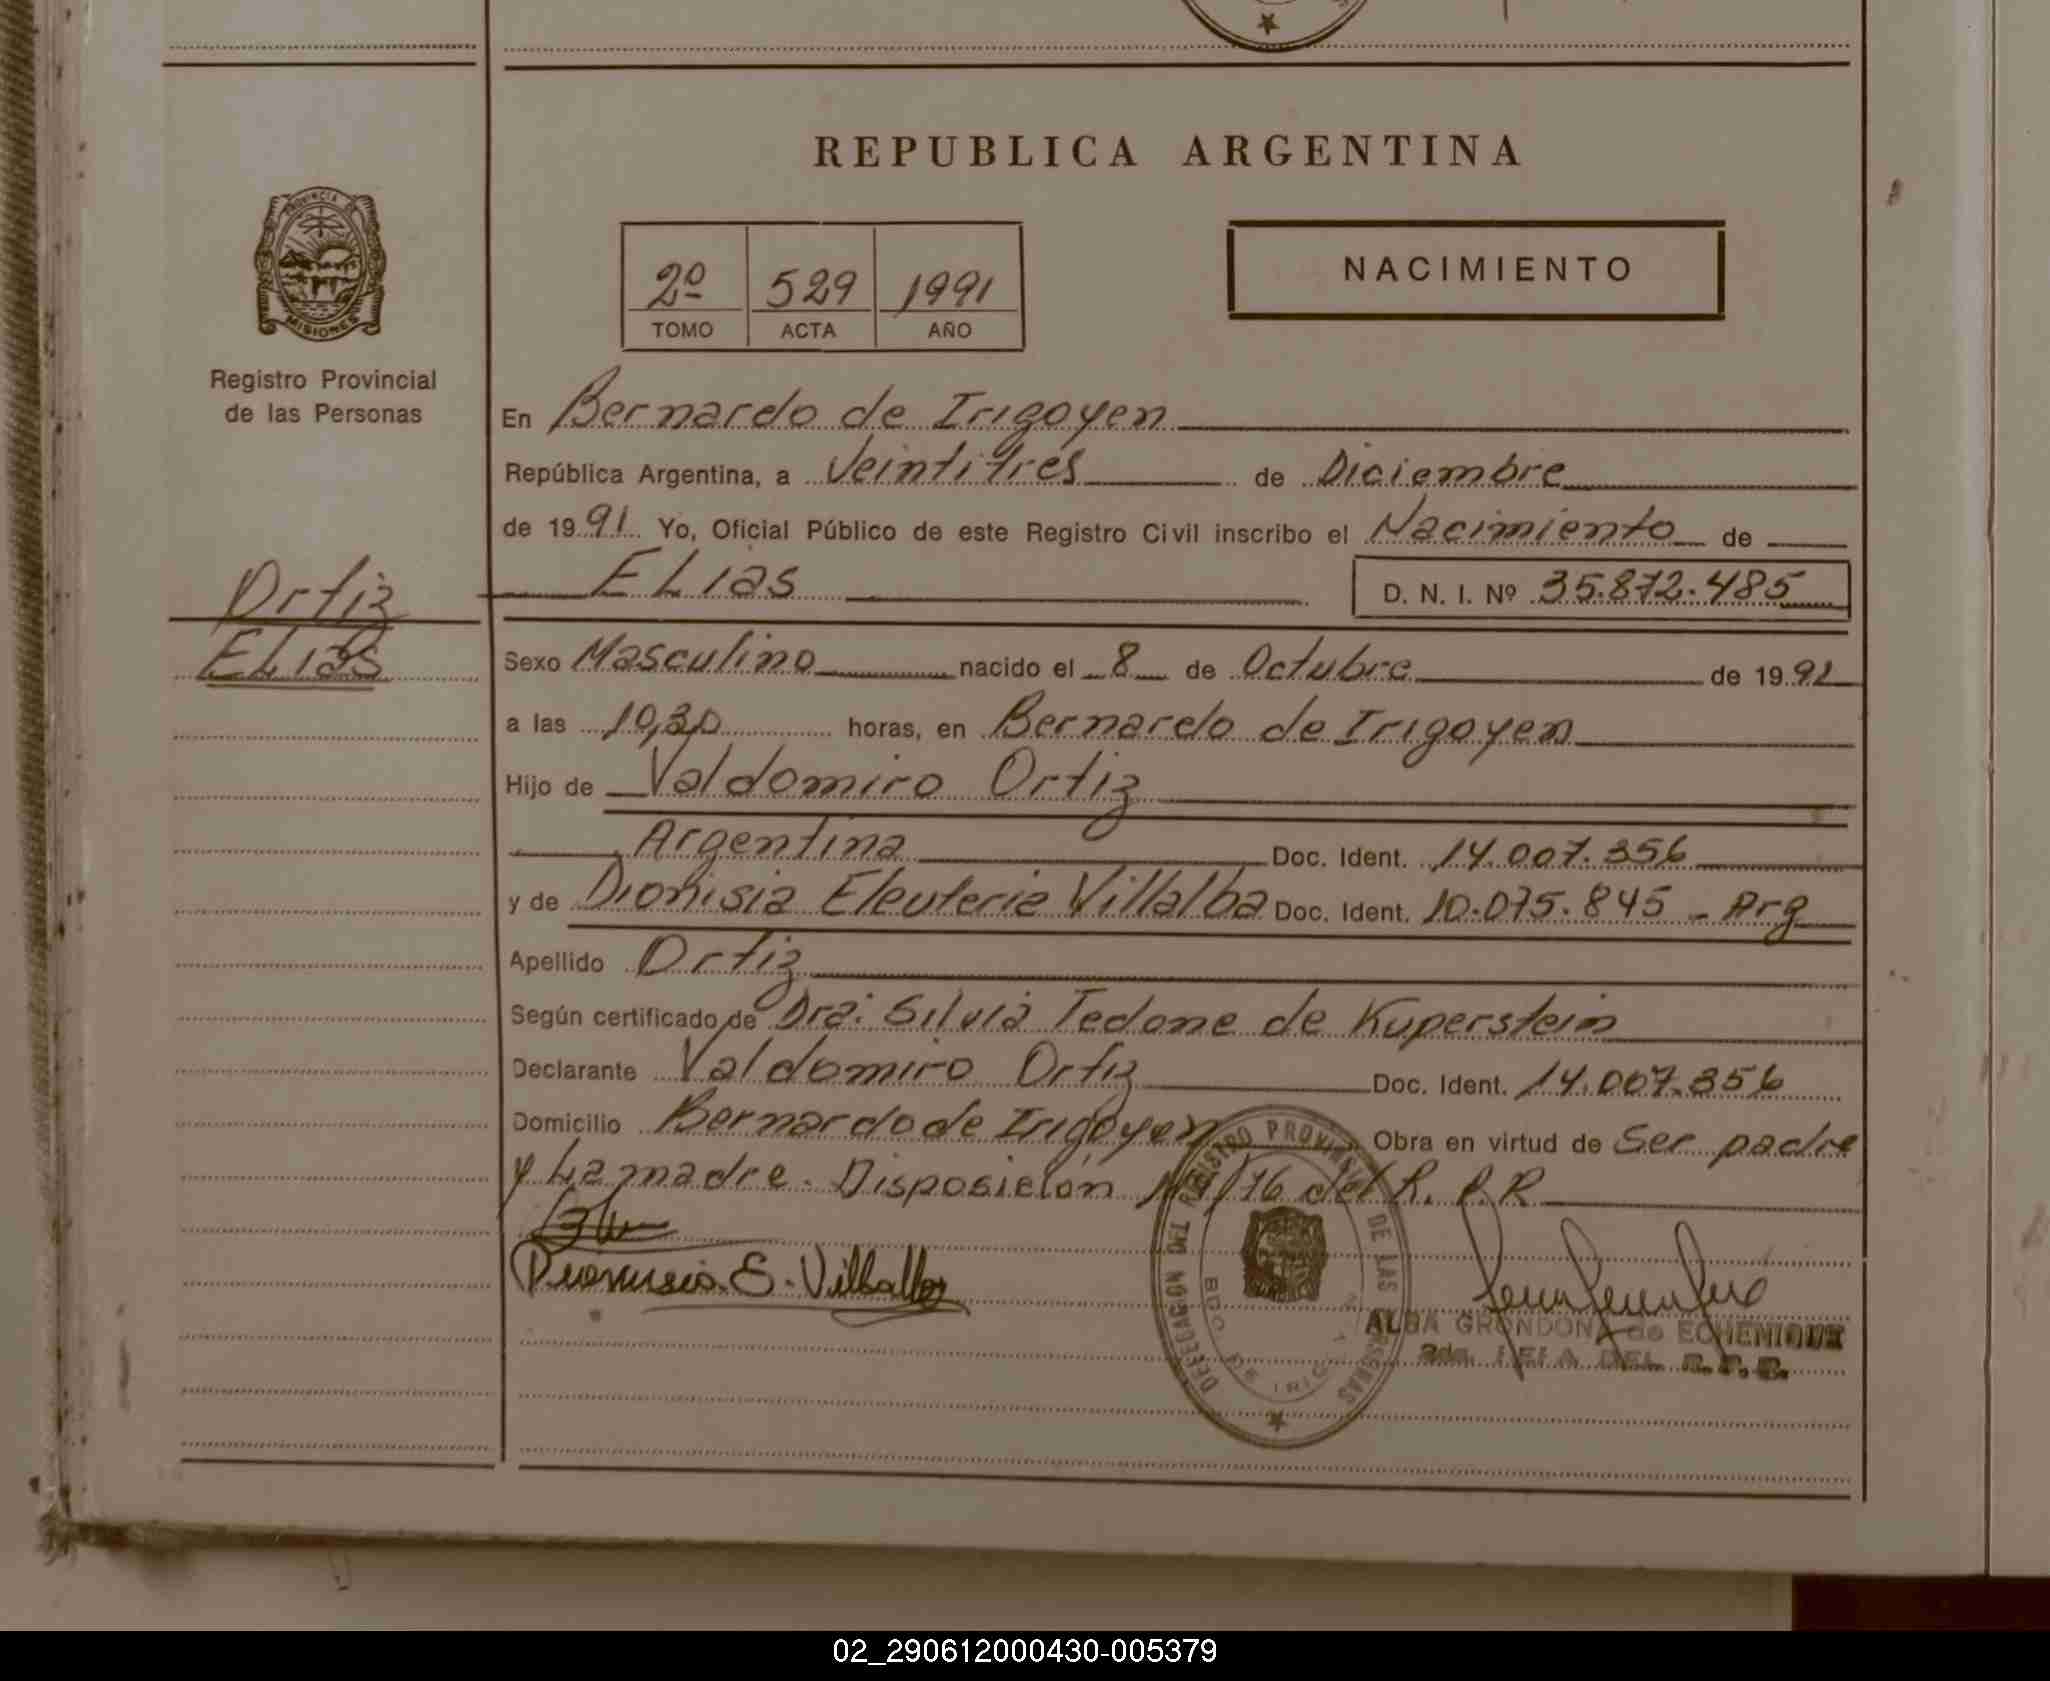 REPUBLICA ARGENTINA
PROVINCIA DE
MISIONES
Registro Provincial
de las Personas
2º 529 1991
TOMO ACTA AÑO
NACIMIENTO
En Bernardo de Irigoyen
República Argentina, a Veintitres de Diciembre
de 1991 Yo, Oficial Público de este Registro Civil inscribo el Nacimiento de
Ortiz
Elias
Elias D. N. I. Nº 35.872.485
Sexo Masculino nacido el 8 de Octubre de 1991
a las 10,30 horas, en Bernardo de Irigoyen
Hijo de Valdomiro Ortiz
Argentina Doc. Ident. 14.007.356
y de Dionisia Eleuteria Villalba Doc. Ident. 10.075.845 - Arg
Apellido Ortiz
Según certificado de Dra: Silvia Tedone de Kuperstein
Declarante Valdomiro Ortiz Doc. Ident. 14.007.356
Domicilio Bernardo de Irigoyen Obra en virtud de Ser padre
y La madre. Disposición Nº 1/76 del R. P. P.
Dionisia E. Villalba
DELEGACION DEL REGISTRO PROVINCIAL DE LAS PERSONAS
BDO. DE IRIGOYEN
ALBA GRONDONA de ECHENIQUE
2da. JEFA DEL R. P. P.
02_290612000430-005379